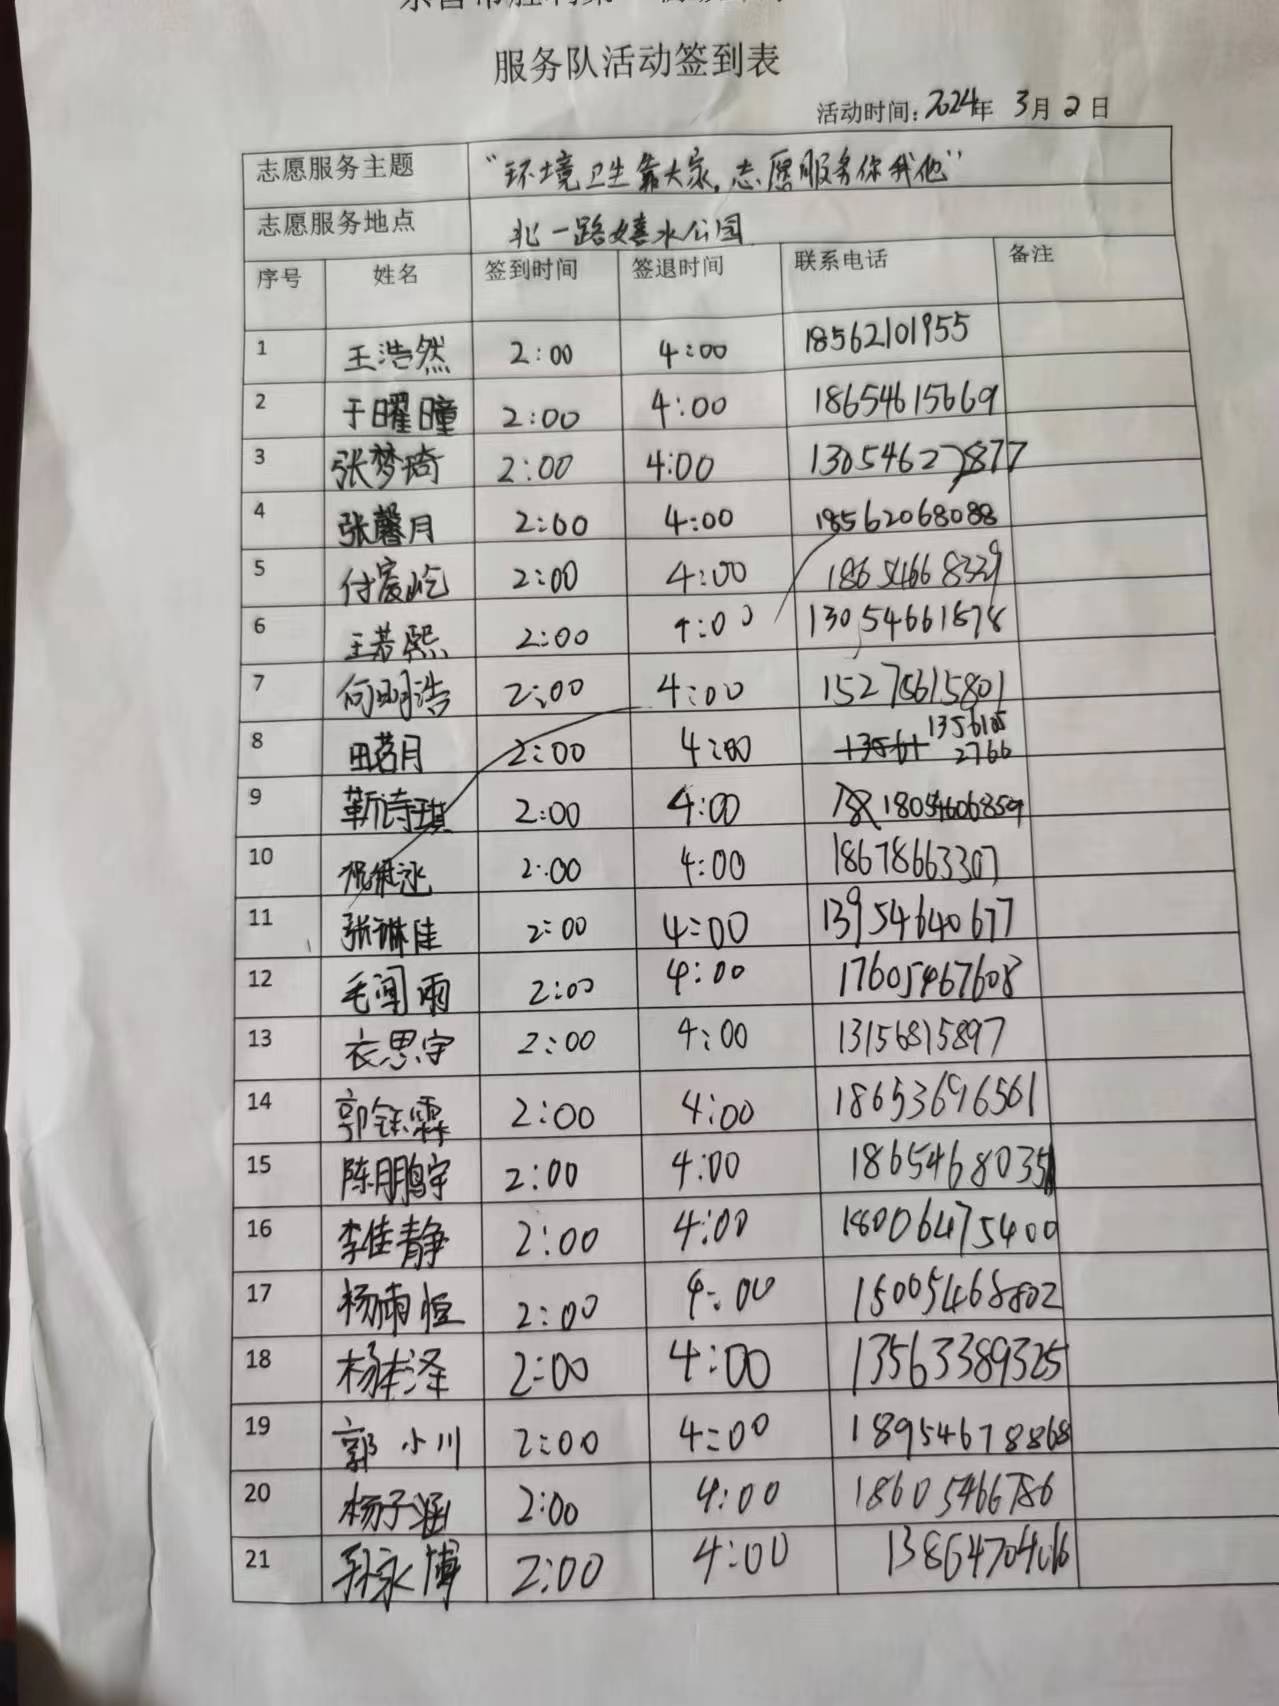 服务队活动签到表
活动时间：2024年 3月 2日
志愿服务主题 “环境卫生靠大家，志愿服务你我他”
志愿服务地点 北一路嬉水公园
序号 姓名 签到时间 签退时间 联系电话 备注
1 王浩然 2:00 4:00 18562101955
2 于曜瞳 2:00 4:00 18654615669
3 张梦琦 2:00 4:00 13054627877
4 张馨月 2:00 4:00 18562068088
5 付宸屹 2:00 4:00 18654668329
6 王若熙 2:00 4:00 13054661878
7 向明浩 2:00 4:00 15275615801
8 田茗月 2:00 4:00 13561 1356105
2766
9 靳诗琪 2:00 4:00 18054606859
10 2:00 4:00 18678663307
11 张琳佳 2:00 4:00 13954640677
12 毛闻雨 2:00 4:00 17605467608
13 衣思宇 2:00 4:00 13156815897
14 郭钰霖 2:00 4:00 18653696561
15 陈鹏宇 2:00 4:00 18654680351
16 李佳静 2:00 4:00 18006475400
17 杨雨恒 2:00 4:00 15005468802
18 杨本泽 2:00 4:00 13563389325
19 郭小川 2:00 4:00 18954678868
20 杨子涵 2:00 4:00 18605466786
21 孙永博 2:00 4:00 13864704616